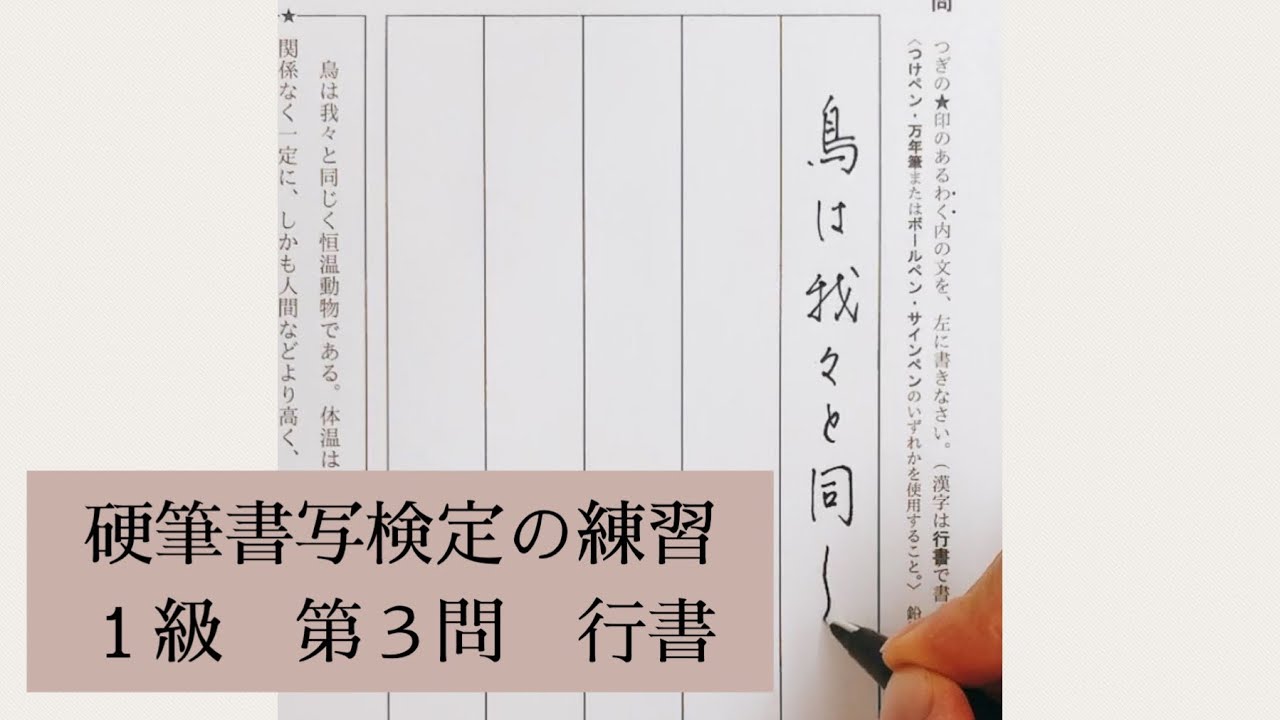 問
つぎの★印のあるわく内の文を、左に書きなさい。（漢字は行書で書
〈つけペン・万年筆またはボールペン・サインペンのいずれかを使用すること。〉 鉛
鳥は我々と同し
鳥は我々と同じく恒温動物である。体温は
★
関係なく一定に、しかも人間などより高く、
硬筆書写検定の練習
１級　第３問　行書